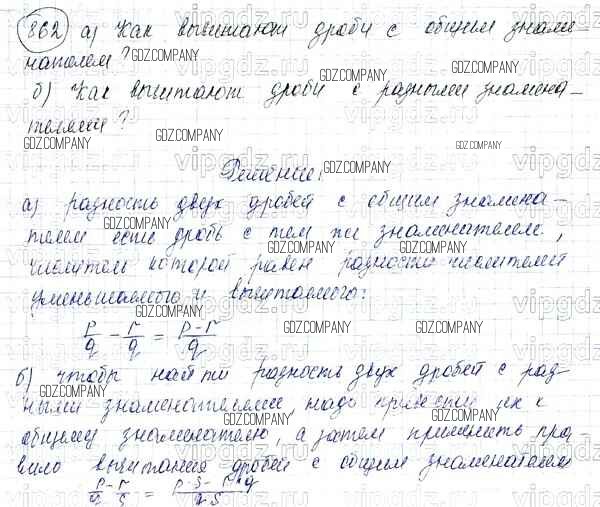 862 а) Как вычитают дроби с общим знаме-
нателем?
б) Как вычитают дроби с разными знамена-
телями?
Решение:
а) разность двух дробей с общим знамена-
телем есть дробь с тем же знаменателем,
числитель которой равен разности числителей
уменьшаемого и вычитаемого:
p/q - r/q = p-r/q
б) чтобы найти разность двух дробей с раз-
ными знаменателями, надо привести их к
общему знаменателю, а затем применить пра-
вило вычитания дробей с общим знаменателем
p/q - r/s = p·s - r·q/q·s
GDZ.COMPANY
vipgdz.ru